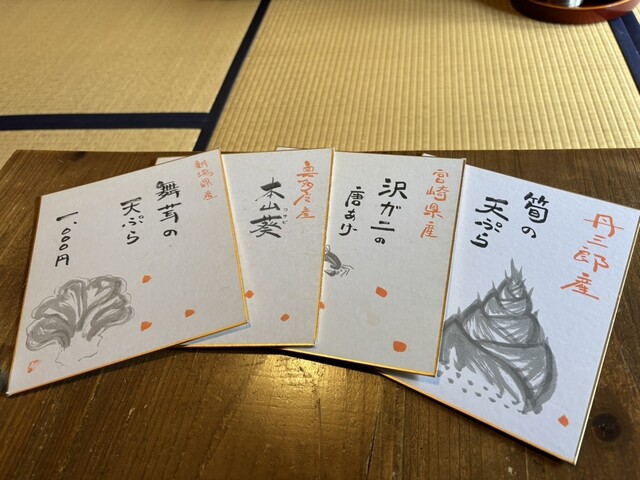 丹三郎産
筍の
天ぷら
宮崎県産
沢ガニの
唐あげ
奥多摩産
本山葵
わさび
新潟県産
舞茸の
天ぷら
一、000円